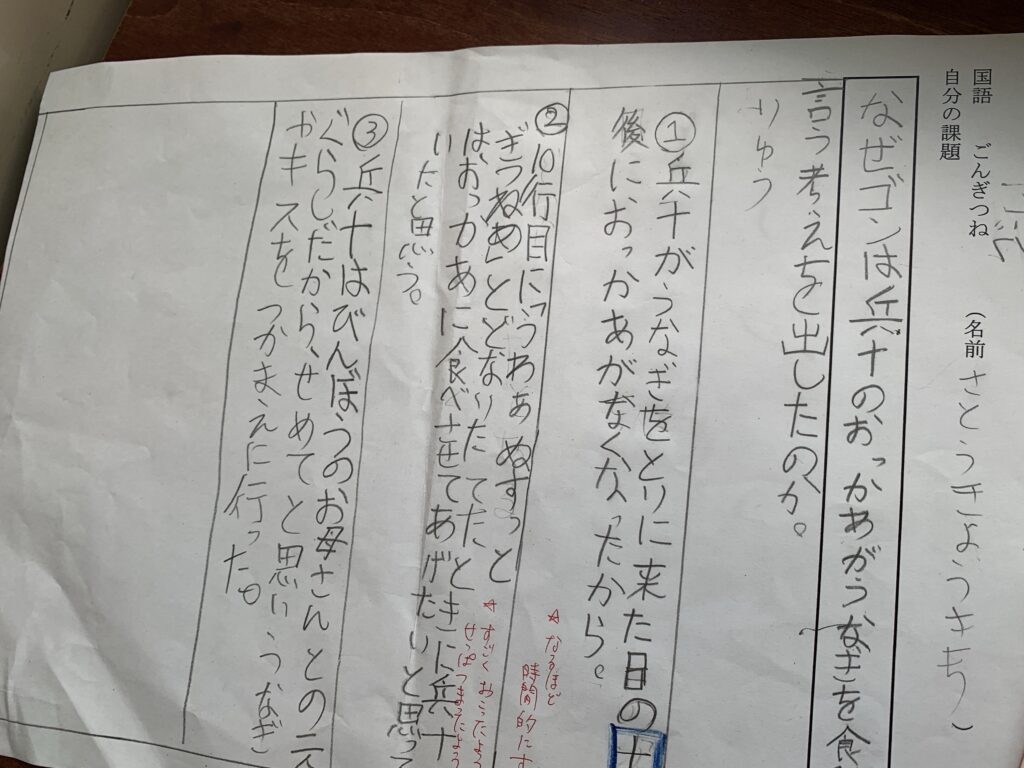 国語　ごんぎつね
自分の課題
（名前 さとうきようきち）
なぜゴンは兵十のおっかあがうなぎを食
言う考えを出したのか。
りゅう
①兵十がうなぎをとりに来た日の十
後におっかあがなくなったから。
☆なるほど
時間的にす
②10行目に「うわぁぬすっと
ぎつねめ」とどなりたてたときに兵十
はおっかあに食べさせてあげたいと思って
いたと思う。
☆すごくおこったよう
せっぱつまったよう
③兵十はびんぼうのお母さんとの二
ぐらしだから、せめてと思いうなぎ
やキスをつかまえに行った。